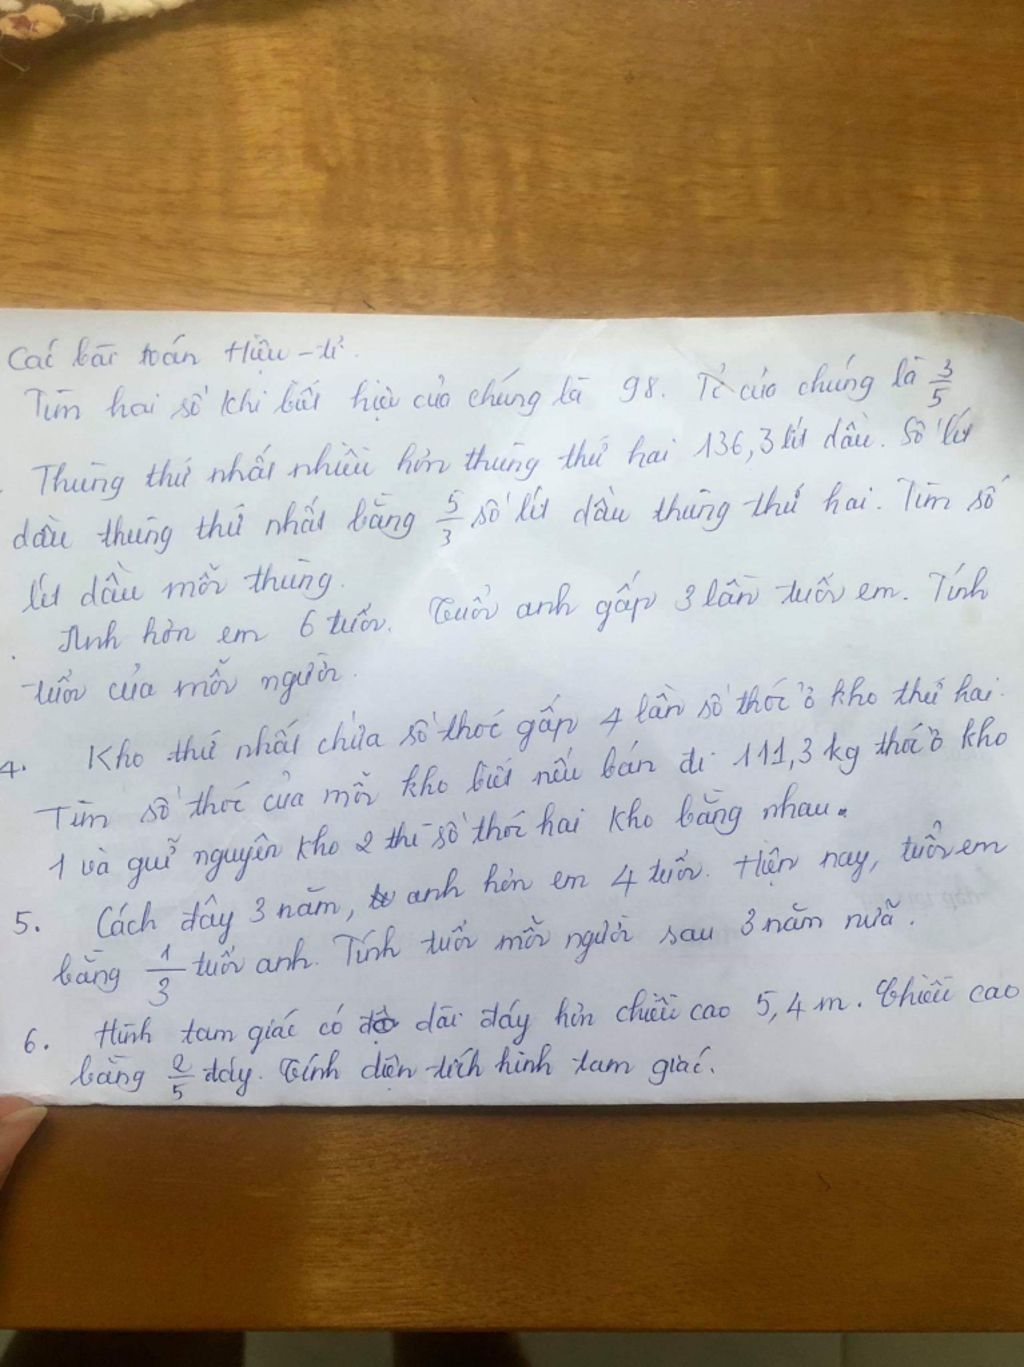 Các bài toán Hiệu - tỉ.
Tìm hai số khi biết hiệu của chúng là 98. Tỉ của chúng là 3/5
Thùng thứ nhất nhiều hơn thùng thứ hai 136,3 lít dầu. Số lít
dầu thùng thứ nhất bằng 5/3 số lít dầu thùng thứ hai. Tìm số
lít dầu mỗi thùng.
Anh hơn em 6 tuổi. Tuổi anh gấp 3 lần tuổi em. Tính
tuổi của mỗi người.
4. Kho thứ nhất chứa số thóc gấp 4 lần số thóc ở kho thứ hai.
Tìm số thóc của mỗi kho biết nếu bán đi 111,3 kg thóc ở kho
1 và giữ nguyên kho 2 thì số thóc hai kho bằng nhau.
5. Cách đây 3 năm, anh hơn em 4 tuổi. Hiện nay, tuổi em
bằng 1/3 tuổi anh. Tính tuổi mỗi người sau 3 năm nữa.
6. Hình tam giác có độ dài đáy hơn chiều cao 5,4 m. Chiều cao
bằng 2/5 đáy. Tính diện tích hình tam giác.